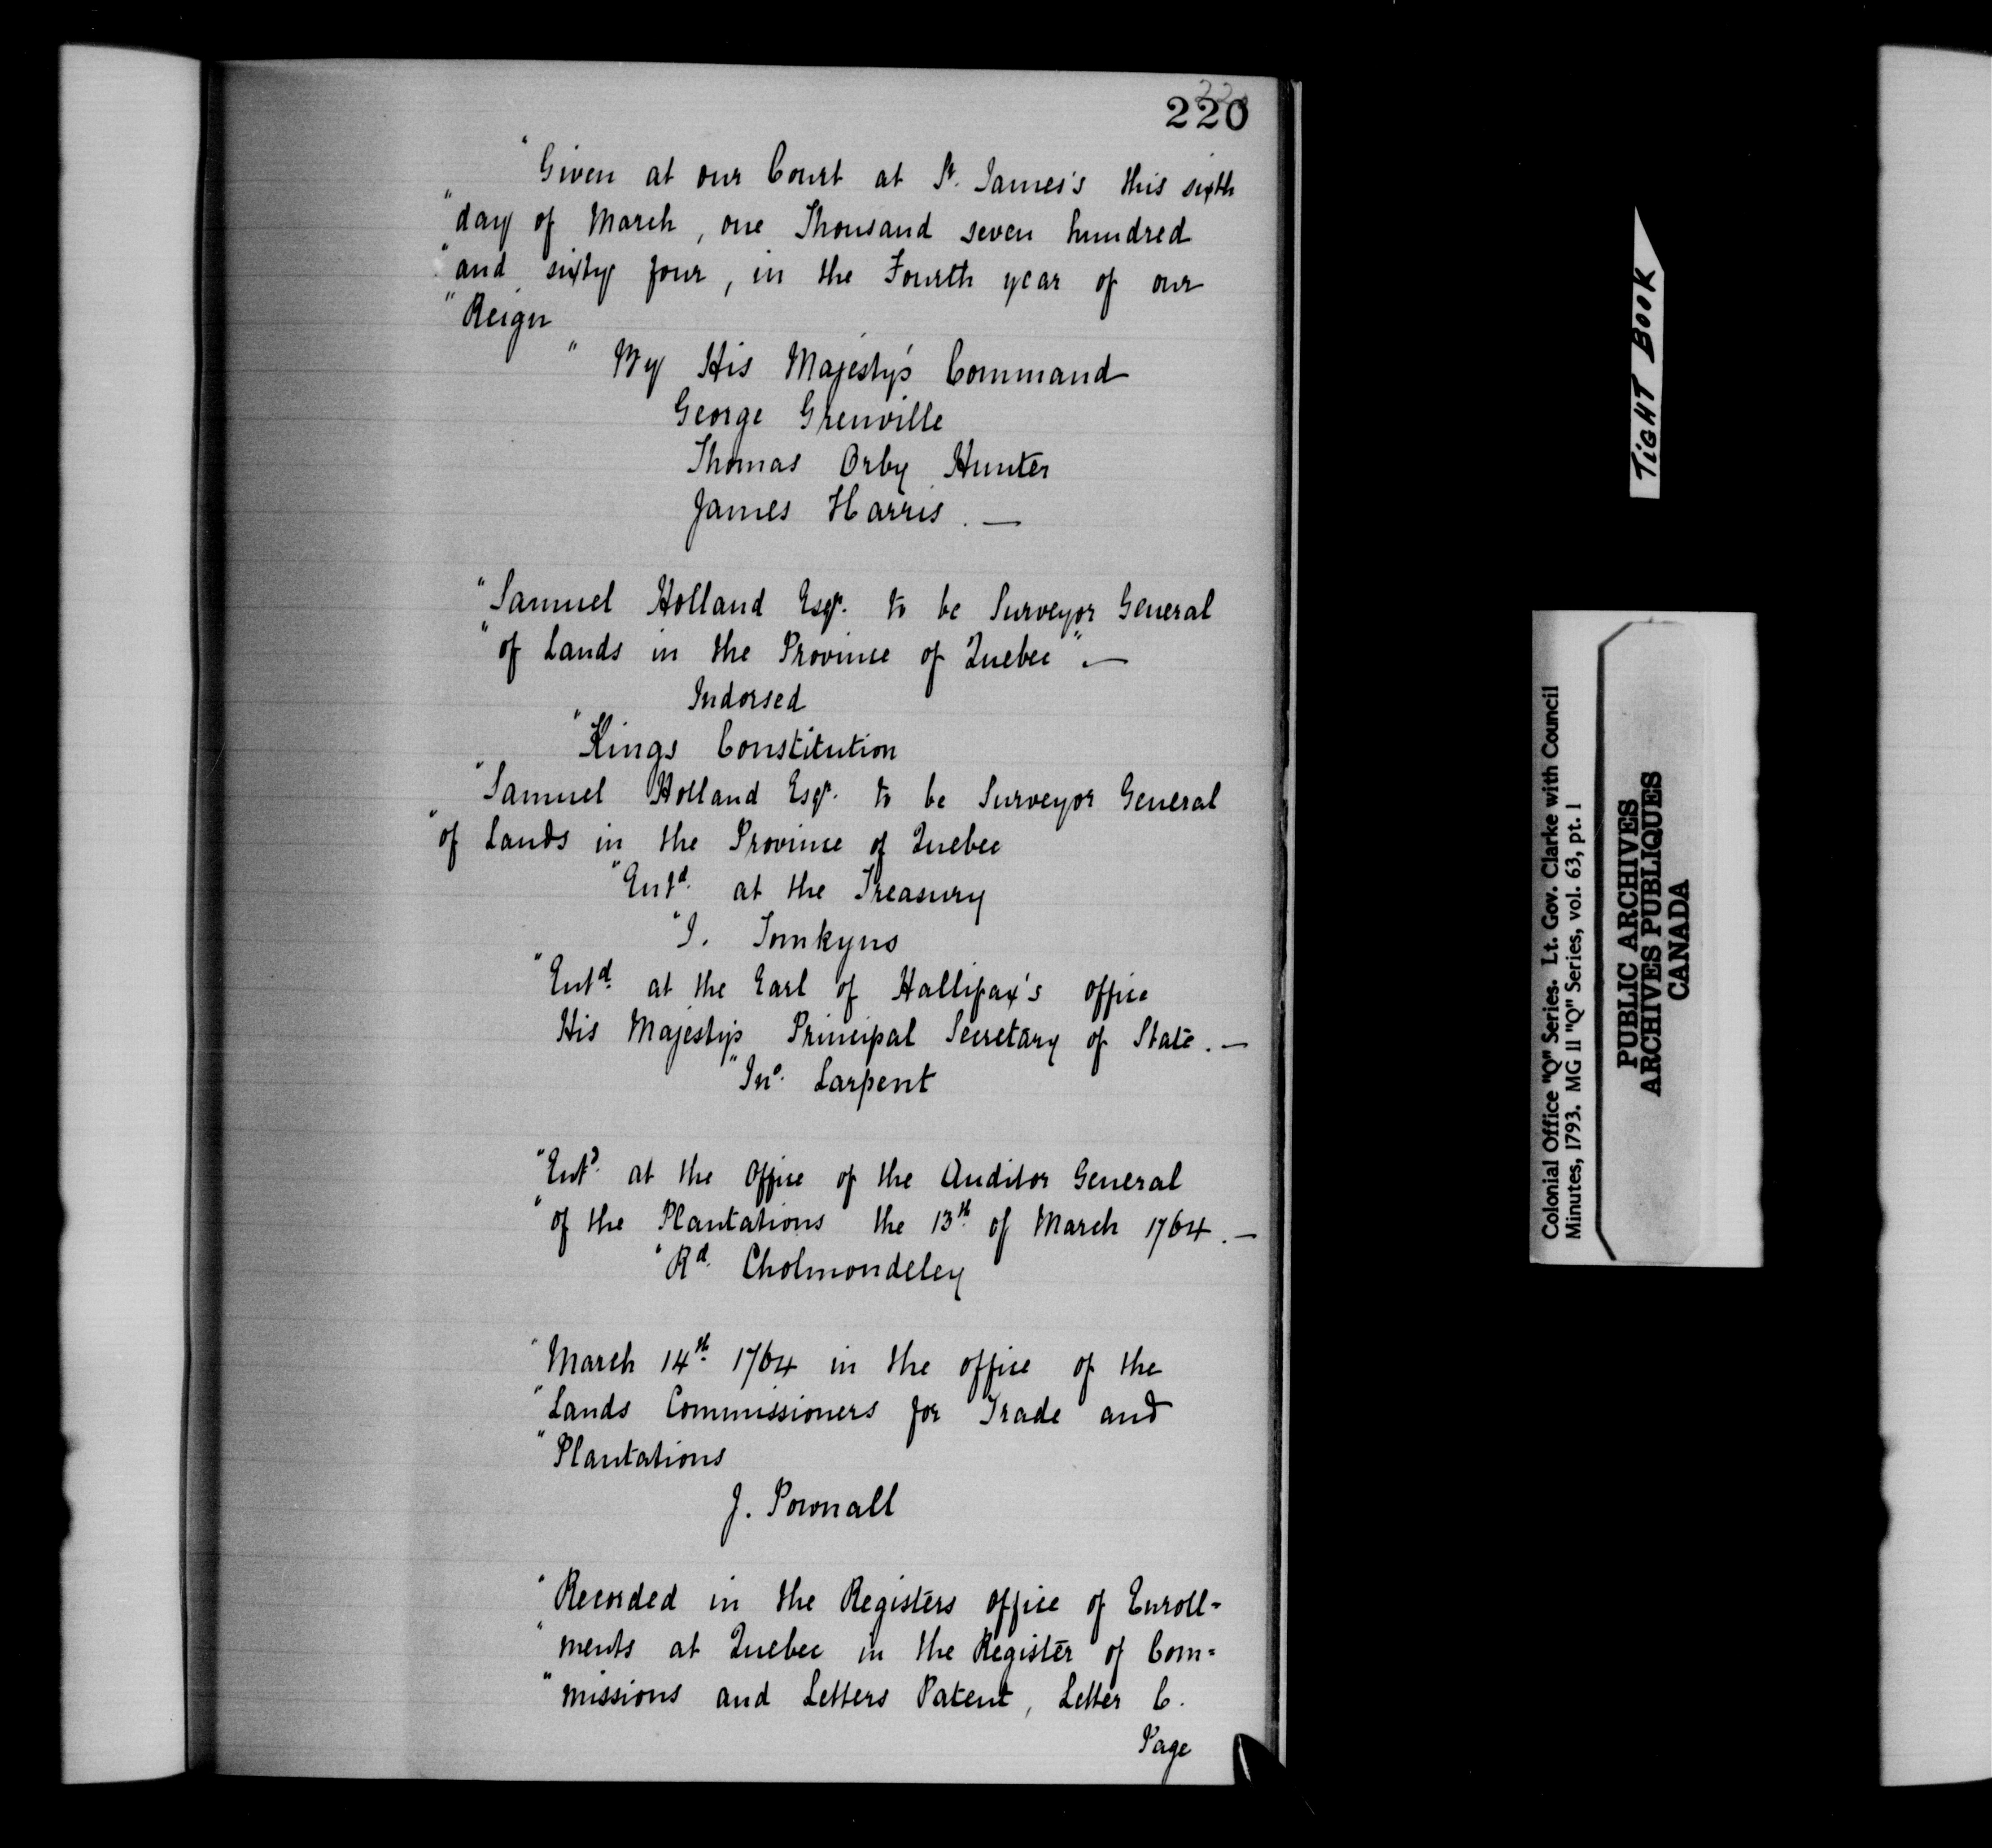 220
"Given at our Court at St. James's this sixth
"day of March, one Thousand seven hundred
"and sixty four, in the Fourth year of our
"Reign
" By His Majesty's Command
George Grenville
Thomas Orby Hunter
James Harris. —
"Samuel Holland Esqr. to be Surveyor General
"of Lands in the Province of Quebec" —
Indorsed
"Kings Constitution
"Samuel Holland Esqr. to be Surveyor General
"of Lands in the Province of Quebec
"Entd. at the Treasury
"T. Tomkyns
"Entd. at the Earl of Hallifax's office
His Majesty's Principal Secretary of State. —
"Jno. Larpent
"Entd. at the Office of the Auditor General
"of the Plantations the 13th. of March 1764. —
"Rd. Cholmondeley
"March 14th. 1764 in the office of the
"Lands Commissioners for Trade and
"Plantations
J. Pownall
"Recorded in the Registers office of Enroll=
"ments at Quebec in the Register of Com=
"missions and Letters Patent, Letter C.
Page
TIGHT BOOK
Colonial Office "Q" Series. Lt. Gov. Clarke with Council
Minutes, 1793. MG 11 "Q" Series, vol. 63, pt. 1
PUBLIC ARCHIVES
ARCHIVES PUBLIQUES
CANADA